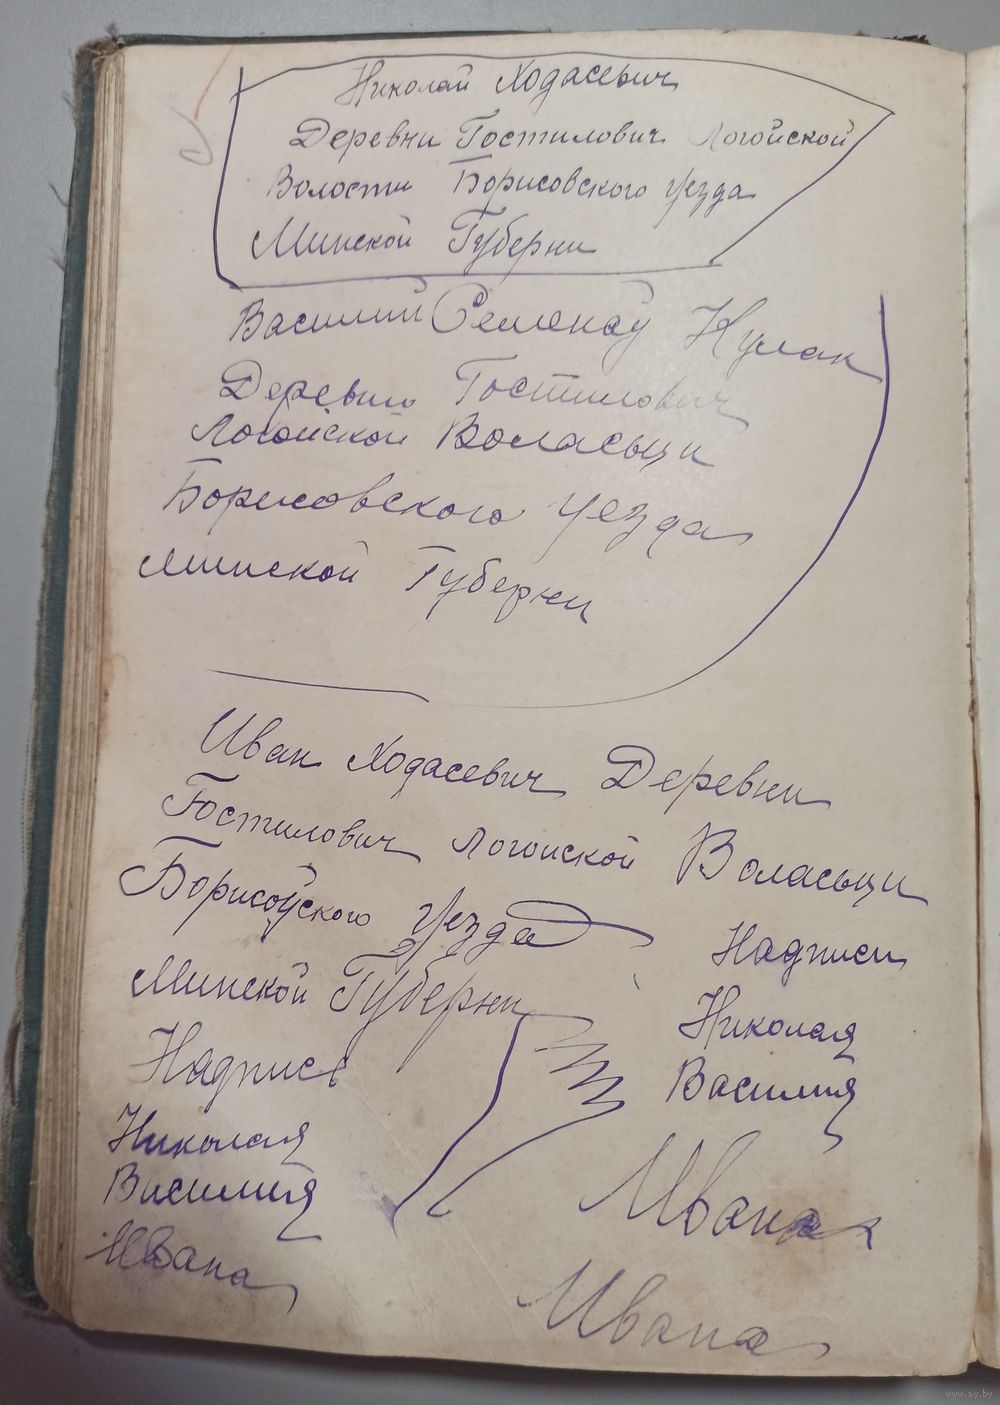 Николай Ходасевич
Деревни Гостилович Логойской
Волости Борисовского уезда
Минской Губерни
Василий Семенаў Кулак
Деревни Гостилович
Логойской Воласьци
Борисовского уезда
Минской Губерни
Иван Ходасевич Деревни
Гостилович Логойской Воласьци
Борисоўского уезда
Минской Губерни
Надписи
Николая
Василия
Ивана
Надписи
Николая
Василия
Ивана
Ивана
www.ay.by